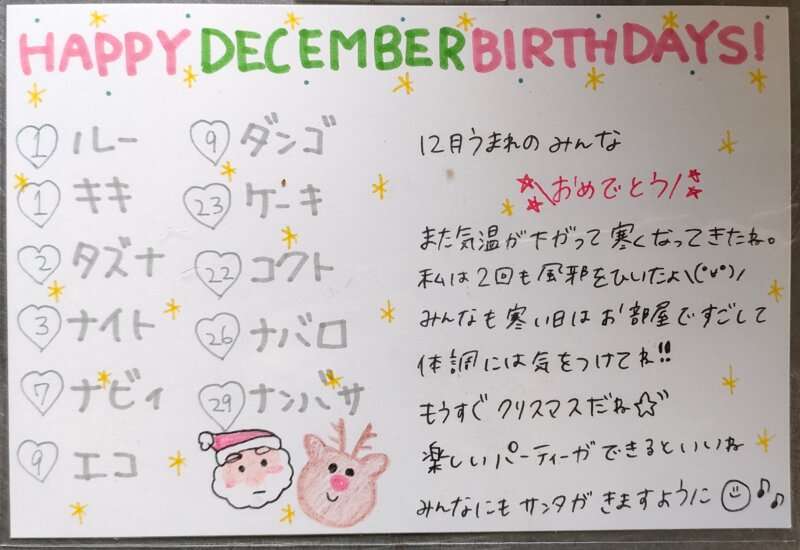 HAPPY DECEMBER BIRTHDAYS!
1 ルー
1 キキ
2 タズナ
3 ナイト
7 ナビィ
9 エコ
9 ダンゴ
23 ケーキ
22 コクト
26 ナバロ
29 ナンバサ
12月うまれの みんな
\おめでとう/
また気温が下がって寒くなってきたね。
私は2回も風邪をひいたよ\(°v°)/
みんなも寒い日はお部屋ですごして
体調には気をつけてね!!
もうすぐ クリスマスだね☆彡
楽しいパーティーができるといいね
みんなにもサンタがきますように☺♪♪